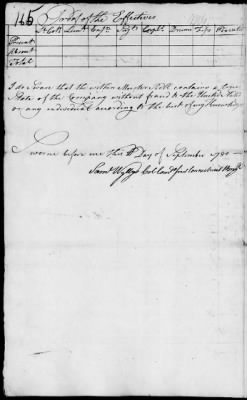 165
Proof of the Effectives
Lt Colo Lieut Ensn Sergts Corpls Drums Fifes Privates
Present
Absent
Total
I do swear that the within Muster Roll contains a true
State of the Company without fraud to the United States
or any individual according to the best of my Knowledge
Sworne before me this Day of September 1780
Saml Wyllys Col